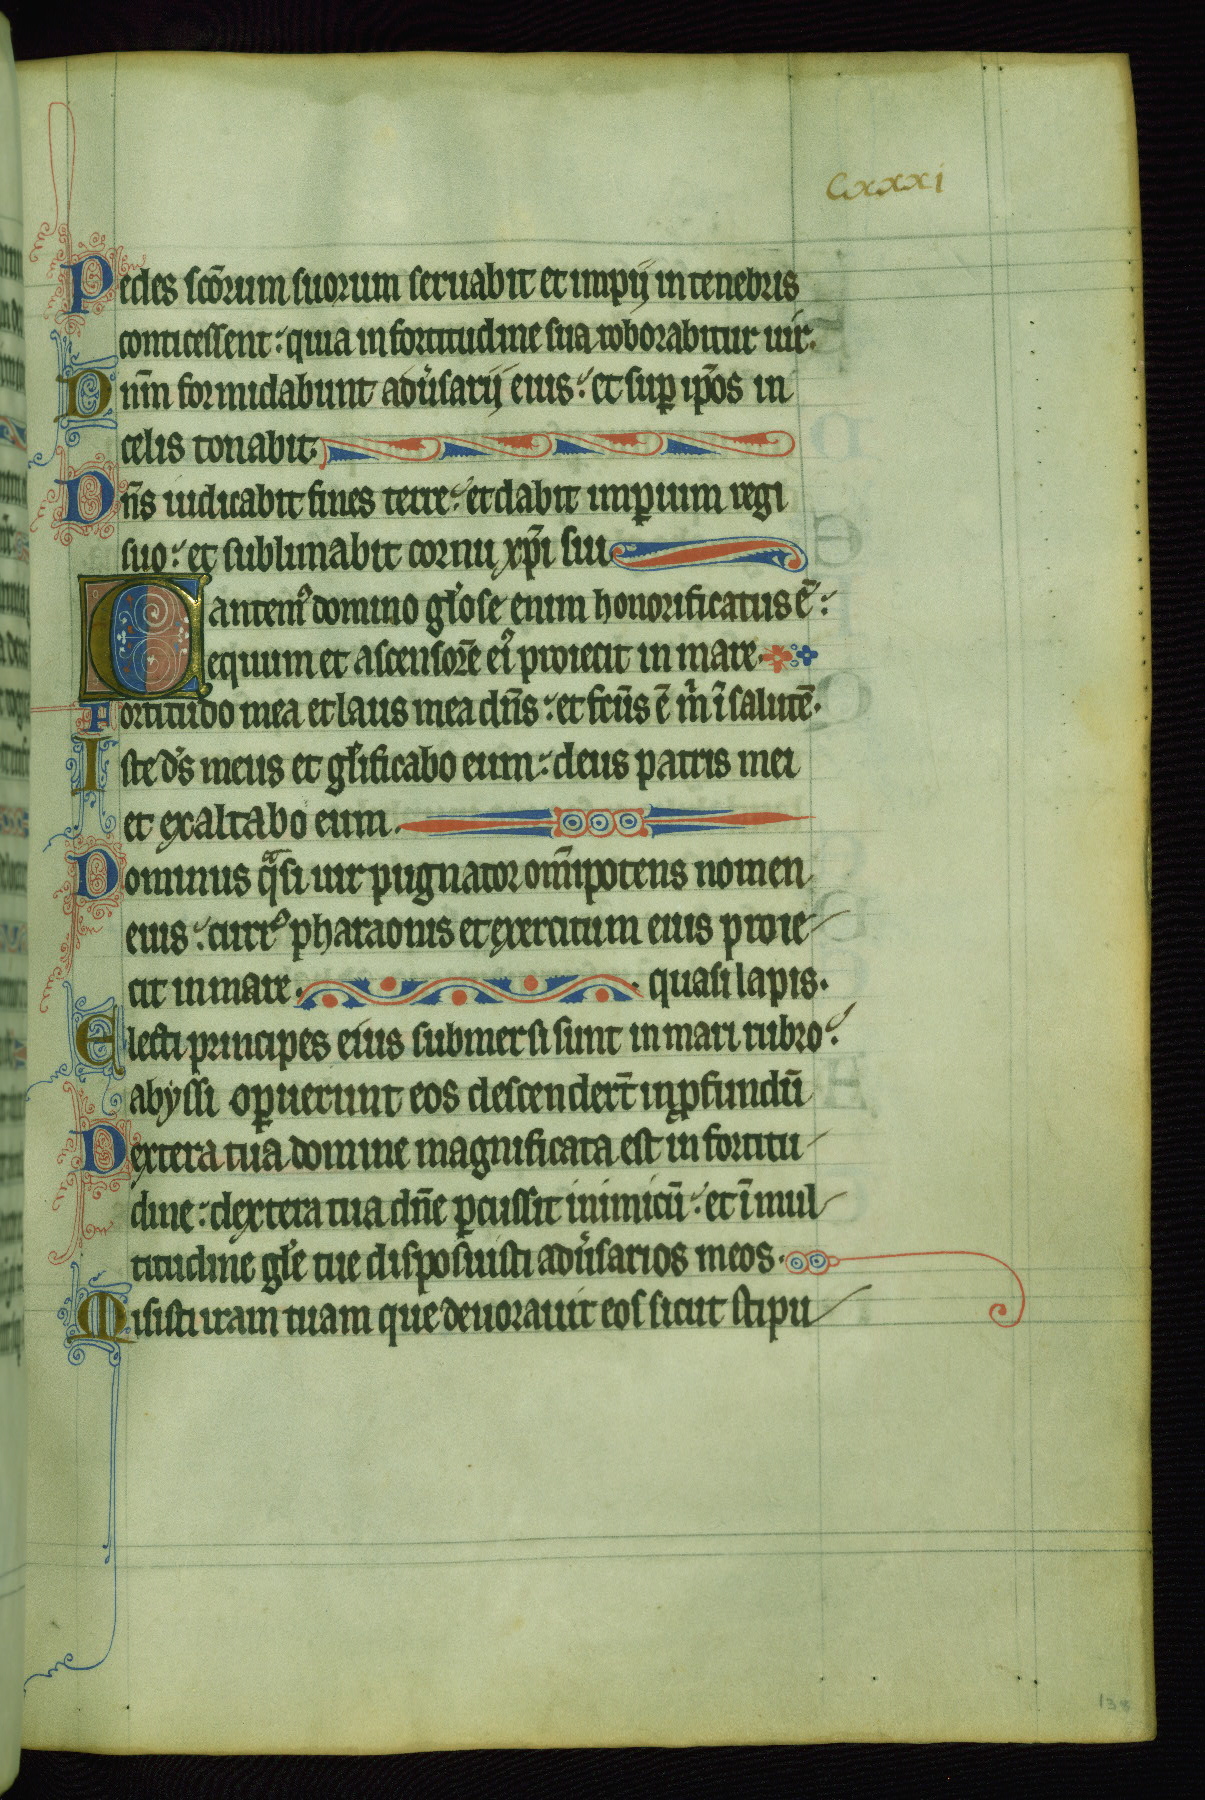 Cxxxi
Pedes sc̄orum suorum seruabit et impij in tenebris
conticessent : quia in fortitudine sua roborabitur uir.
Dnm̄ formidabunt adu͛sarij eius : et sup̱ ip̄os in
celis tonabit.
Dn̄s iudicabit fines terre : et dabit imp̱ium regi
suo : et sublimabit cornu xp̄i sui
Cantem᷒ domino gl͛ose enim honorificatus ē :
equum et ascensorē ei᷒ proiecit in mare.
Fortitudo mea et laus mea dn̄s : et fc̄us ē m̍ ī salutē.
Iste d͛s meus et gl͛ificabo eum : deus patris mei
et exaltabo eum.
Dominus qͣsi uir pugnator om̄ipotens nomen
eius : curr᷒ pharaonis et exercitum eius proie
cit in mare. quasi lapis.
Electi principes eius submersi sunt in mari rubro :
abyssi op̱uerunt eos descendert̄ in ꝓfundū
Dextera tua domine magnificata est in fortitu
dine : dextera tua dn̄e p̱cussit inimicū : et ī mul
titudine gl͛e tue disposuisti adu͛sarios meos.
Misisti iram tuam que deuorauit eos sicut stipu
138